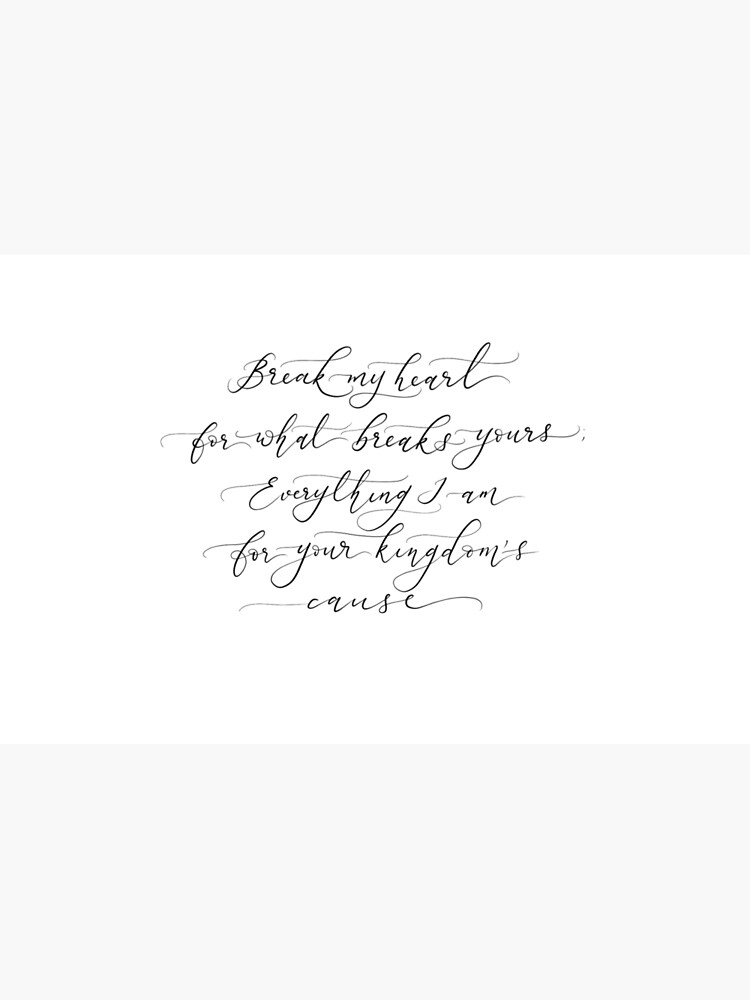 Break my heart
for what breaks yours;
Everything I am
for your kingdom's
cause